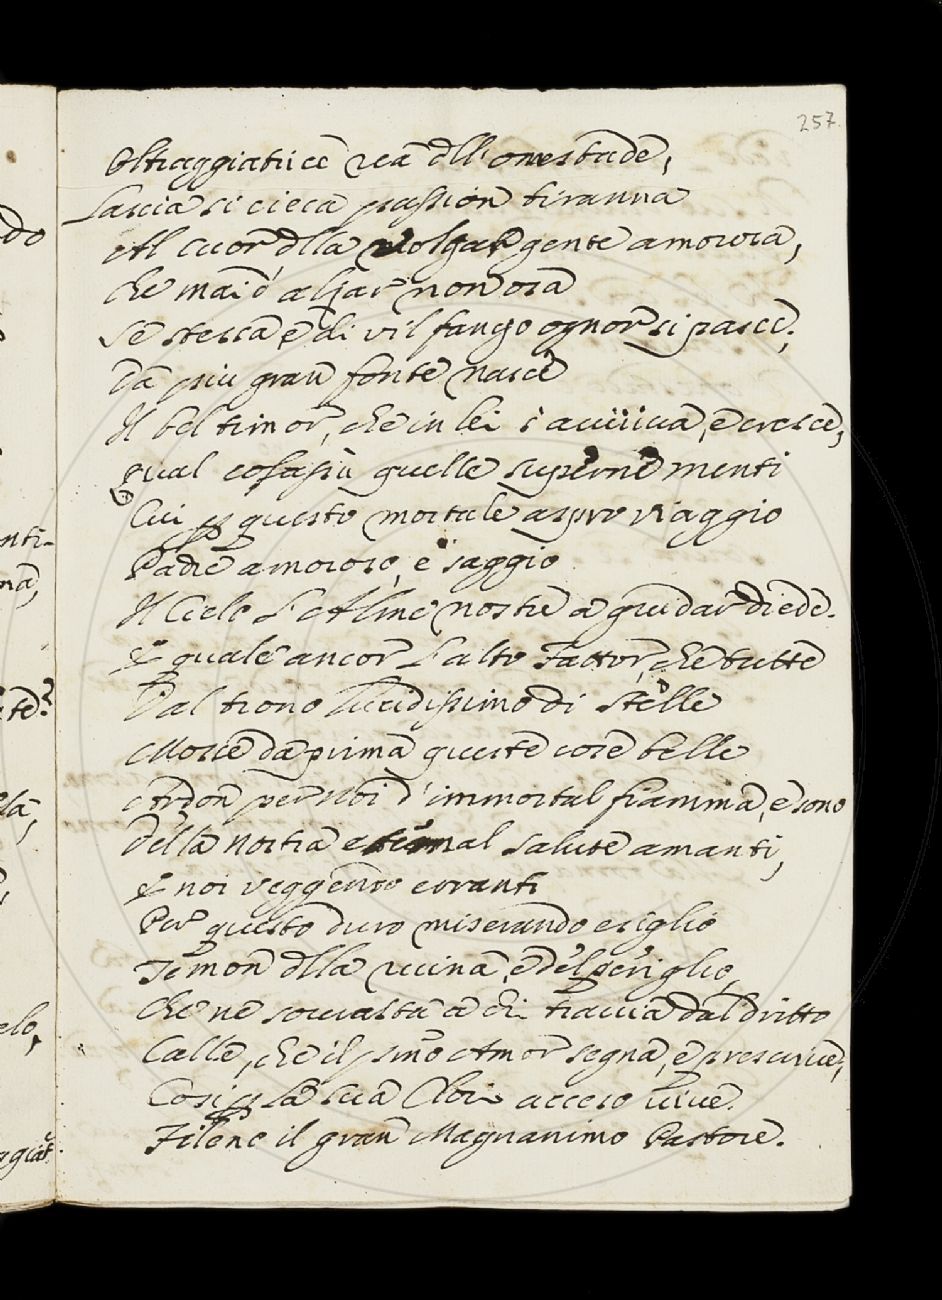 257.
Oltraggiatrice rea dll' onestade,
Lascia si cieca passion tiranna
Al cuor dlla volgar gente amorosa,
Che mai d' alzar non osa
Se stessa, e di vil fango ognor si pasce;
Da piu gran fonte nasce
Il bel timor, che in lei s' avviva, e cresce,
Qual cosa
quelle superne menti
Cui p questo mortale aspro viaggio
Padre amoroso, e saggio
Il Cielo l' Alme nostre a guidar diede.
E quale ancor l' alto Fattor, che tutte
Dal trono lucidissimo di Stelle
Mosse da prima queste cose belle
Ardon per Noi d' immortal fiamma, e sono
Della nostra eternal salute amanti,
E noi veggendo erranti
Per questo duro miserando esiglio
Temon dlla ruina, e del periglio,
Che ne sovrasta a chi travia dal dritto
Calle, che il pmo Amor segna, e prescrive,
Cosi p la sua Clori acceso vive
Fileno il gran Magnanimo Pastore.
do
nti-
na,
te?
la,
elo,